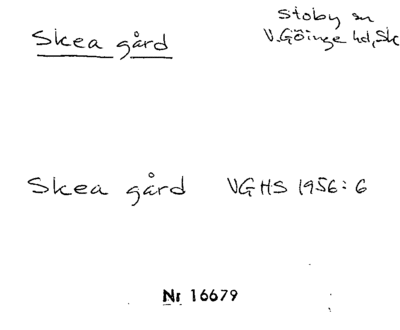 Stoby sn
Skea gård
V. Göinge hd, Sk
Skea gård VGHS 1956:6
Nr 16679